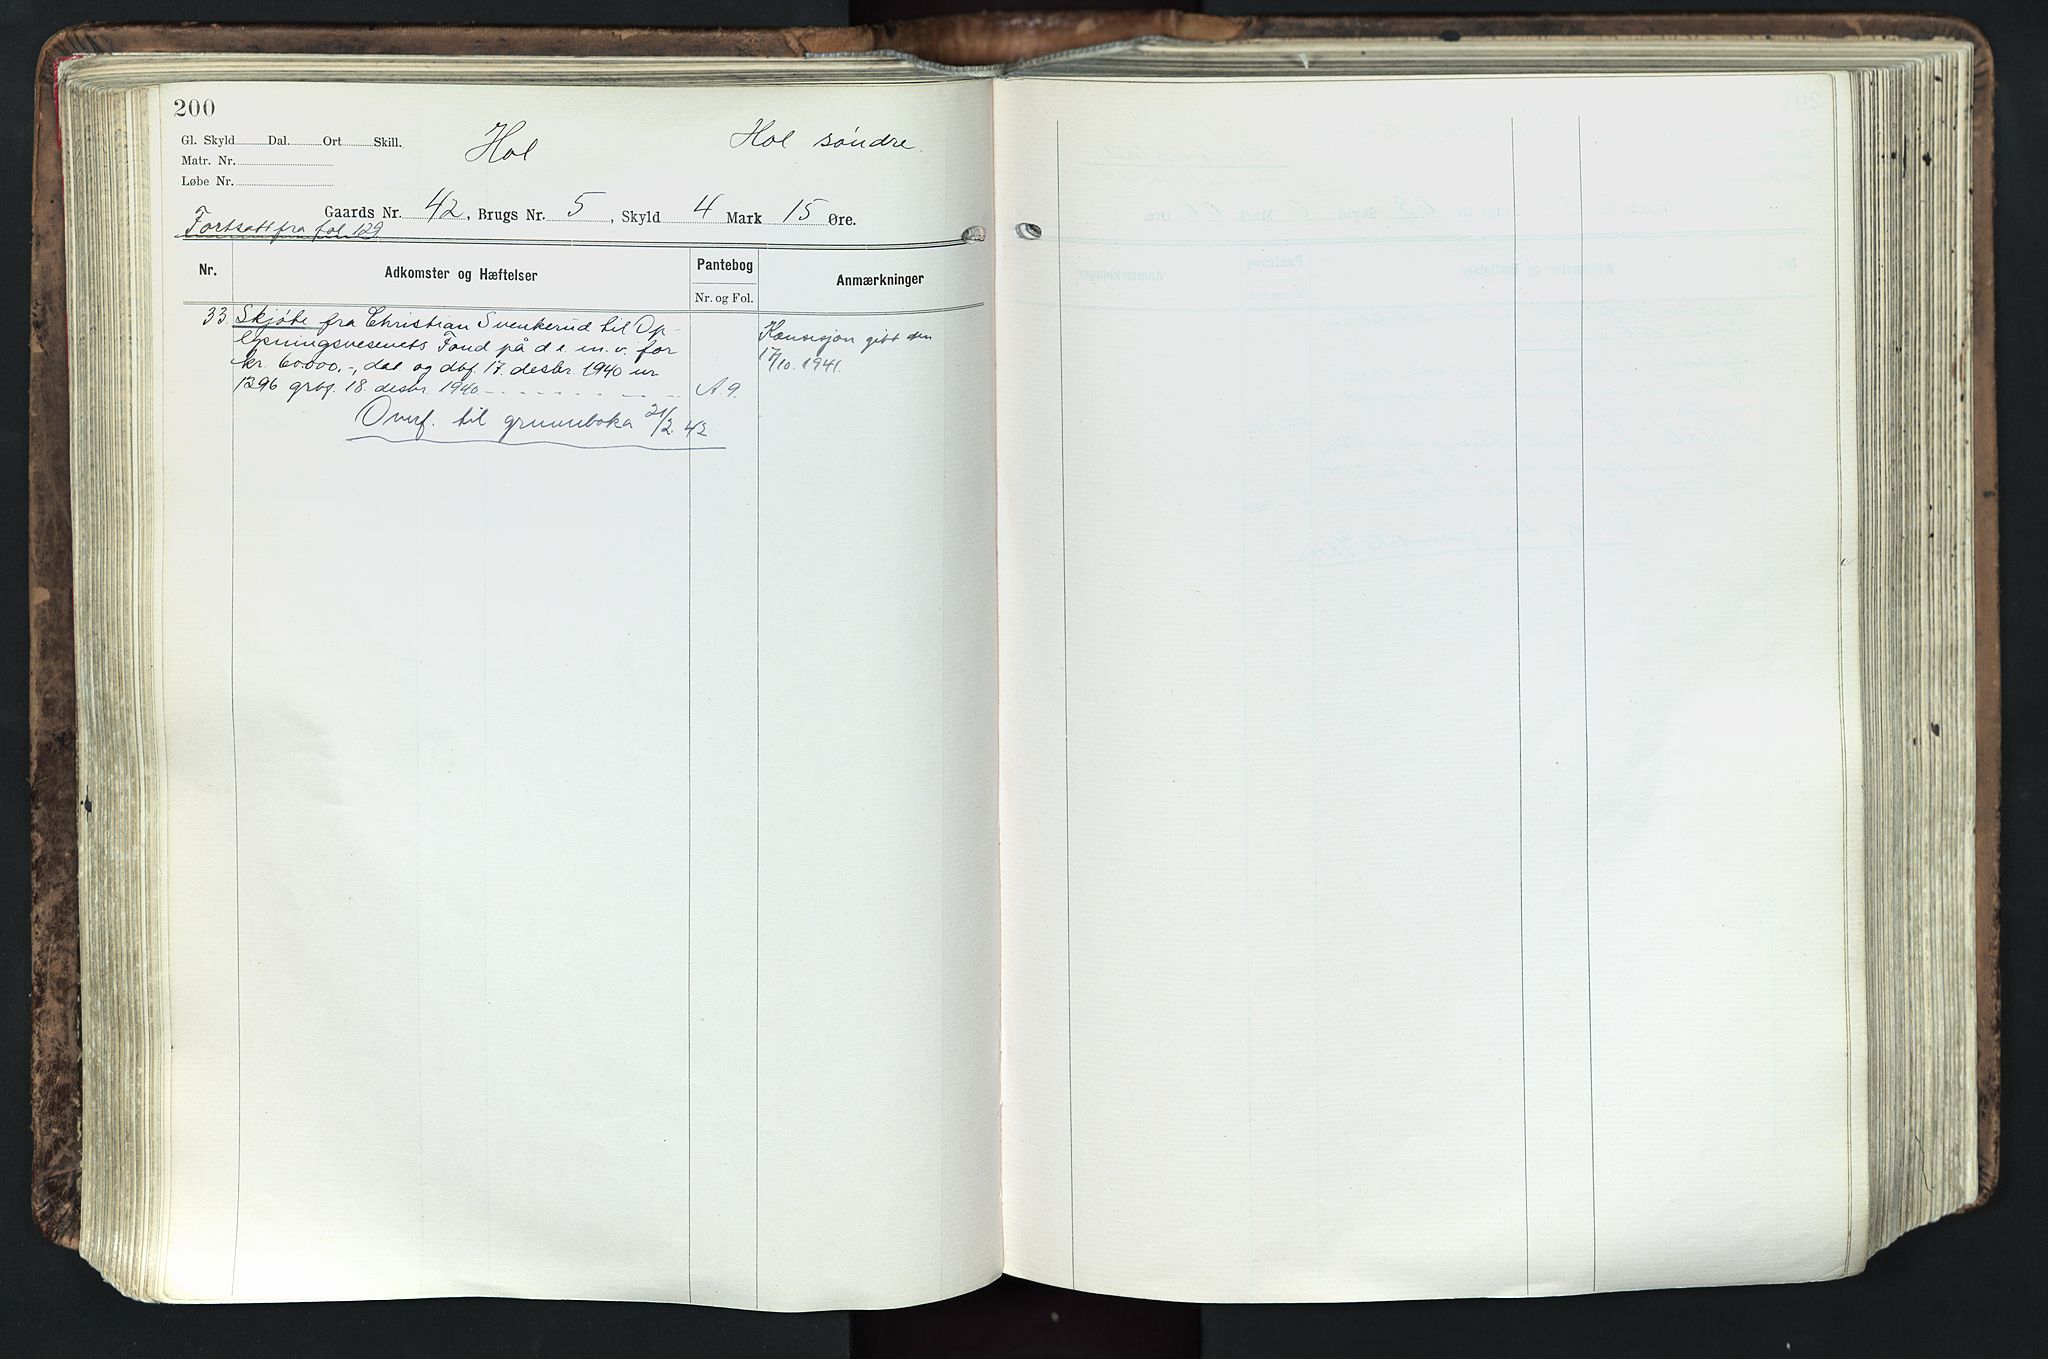 200
Gl. Skyld Dal. Ort Skill.
Matr. Nr.
Løbe Nr.
Hol
Hol søndre.
Gaards Nr. 42, Brugs Nr. 5, Skyld 4 Mark 15 Øre.
Fortsatt fra fol 129
Nr.
Adkomster og Hæftelser
Pantebog
Nr. og Fol.
Anmærkninger
33. Skjøte fra Christian Svenkerud til Op-
lysningsvesenets Fond på d. e. m. v. for
kr. 60.000,-, dat og dbf. 17. desbr. 1940 nr
1296 grbf. 18. desbr. 1940 A. 9.
Overf. til grunnboka 21/2. 42
Konsesjon gitt den
17/10. 1941.